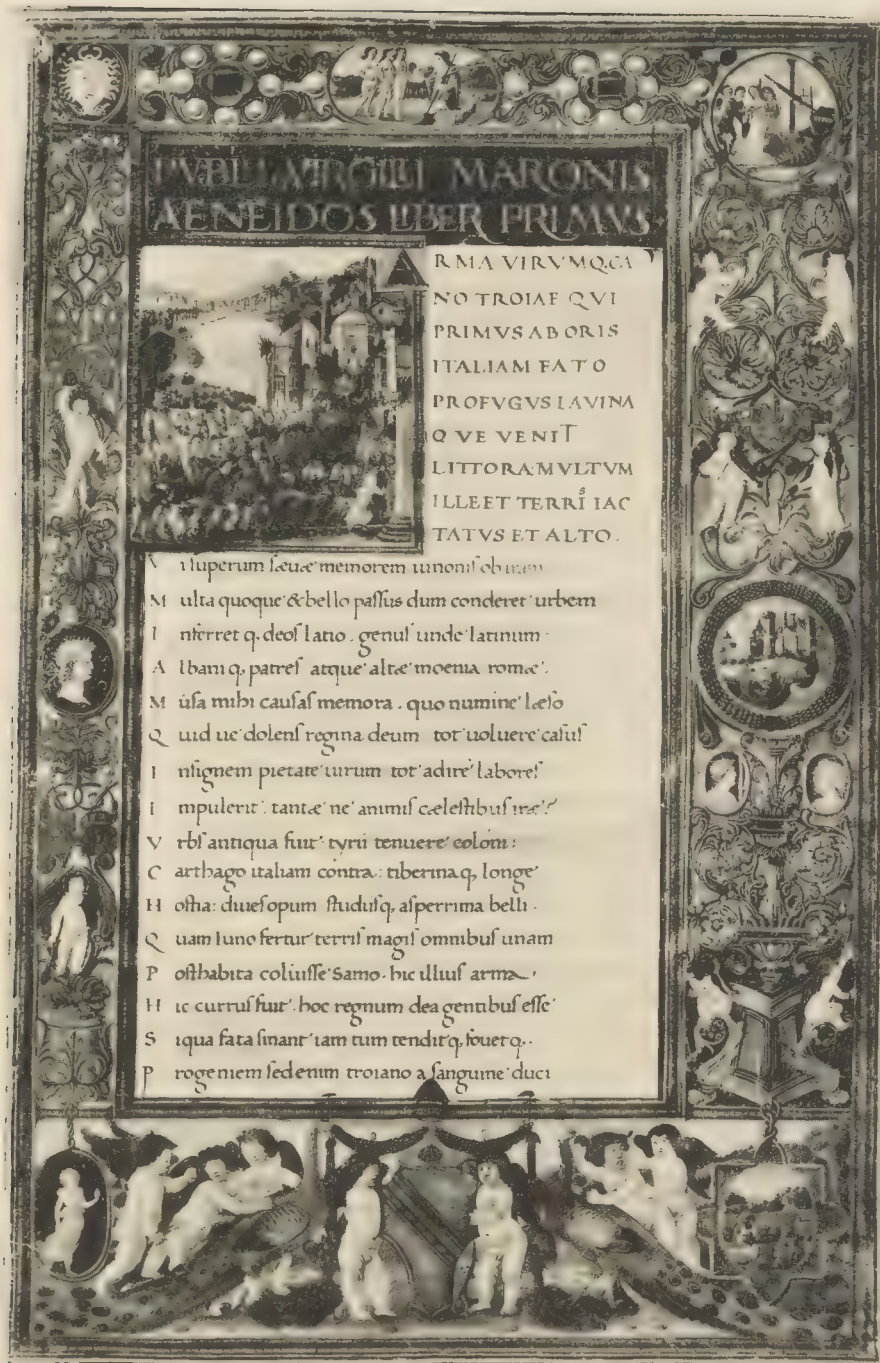 PVBLI VIRGILII MARONIS
AENEIDOS LIBER PRIMVS.
A RMA VIRVMQ. CA
NO TROIAE QVI
PRIMVS AB ORIS
ITALIAM FATO
PROFVGVS LAVINA
QVE VENIT
LITTORA: MVLTVM
ILLE ET TERRIS IAC
TATVS ET ALTO.
V i superum sæuæ memorem iunonis ob iram
M ulta quoque & bello passus dum conderet urbem
I nferret q. deos latio. genus unde latinum.
A lbani q. patres atque altæ moenia romæ.
M usa mihi causas memora. quo numine læso
Q uid ue dolens regina deum tot uoluere casus
I nsignem pietate uirum tot adire labores
I mpulerit. tantæ ne animis cælestibus iræ?
V rbs antiqua fuit: tyrii tenuere coloni:
C arthago italiam contra: tiberina q. longe
H ostia: diues opum studiis q. asperrima belli.
Q uam Iuno fertur terris magis omnibus unam
P osthabita coluisse Samo. hic illius arma.
H ic currus fuit. hoc regnum dea gentibus esse
S iqua fata sinant iam tum tendit q. fouet q.
P rogeniem sed enim troiano a sanguine duci